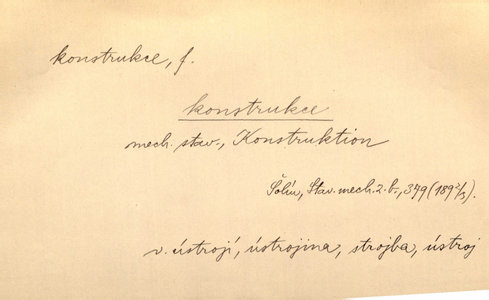 konstrukce, f.
konstrukce
mech. stav., Konstruktion
Šolín, Stav. mech. 2. b., 349 (189 2/3).
v. ústrojí, ústrojina, strojba, ústroj